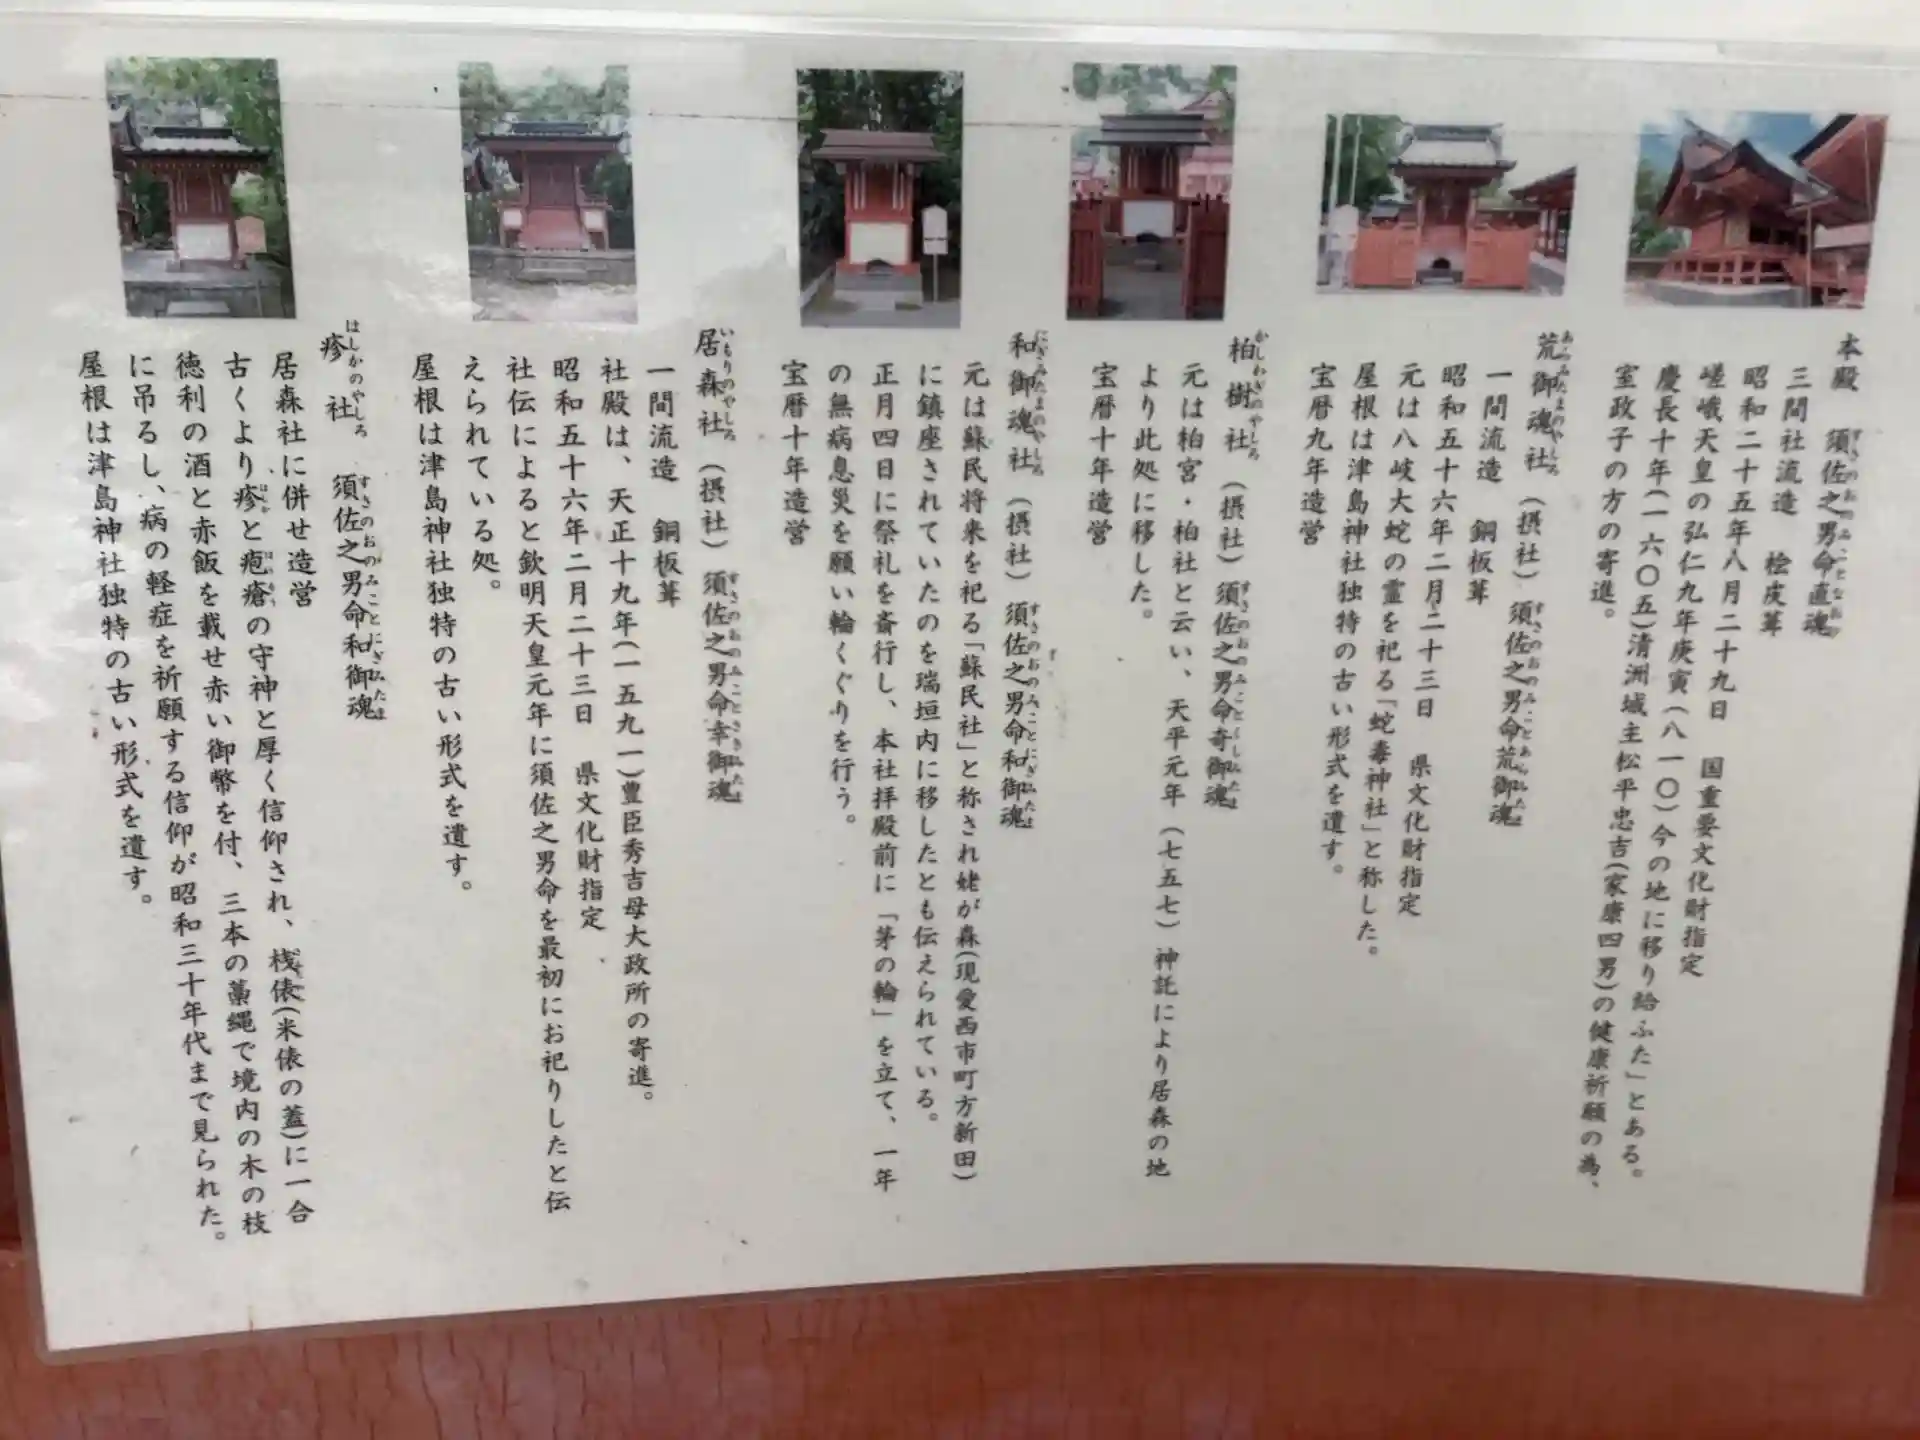 本殿　須佐之男命直魂
三間社流造　桧皮葺
昭和二十五年八月二十九日　国重要文化財指定
嵯峨天皇の弘仁九年庚寅(八一〇)今の地に移り給ふた」とある。
慶長十年(一六〇五)清洲城主松平忠吉(家康四男)の健康祈願の為、
室政子の方の寄進。
荒御魂社（摂社）須佐之男命荒御魂
一間流造　銅板葺
昭和五十六年二月二十三日　県文化財指定
元は八岐大蛇の霊を祀る「蛇毒神社」と称した。
屋根は津島神社独特の古い形式を遺す。
宝暦九年造営
柏樹社（摂社）須佐之男命奇御魂
元は柏宮・柏社と云い、天平元年（七五七）神託により居森の地
より此処に移した。
宝暦十年造営
和御魂社（摂社）須佐之男命和御魂
元は蘇民将来を祀る「蘇民社」と称され姥が森(現愛西市町方新田)
に鎮座されていたのを瑞垣内に移したとも伝えられている。
正月四日に祭礼を斎行し、本社拝殿前に「茅の輪」を立て、一年
の無病息災を願い輪くぐりを行う。
宝暦十年造営
居森社（摂社）須佐之男命幸御魂
一間流造　銅板葺
社殿は、天正十九年(一五九一)豊臣秀吉母大政所の寄進。
昭和五十六年二月二十三日　県文化財指定
社伝によると欽明天皇元年に須佐之男命を最初にお祀りしたと伝
えられている処。
屋根は津島神社独特の古い形式を遺す。
疹社　須佐之男命和御魂
居森社に併せ造営
古くより疹と疱瘡の守神と厚く信仰され、桟俵(米俵の蓋)に一合
徳利の酒と赤飯を載せ赤い御幣を付、三本の藁縄で境内の木の枝
に吊るし、病の軽症を祈願する信仰が昭和三十年代まで見られた。
屋根は津島神社独特の古い形式を遺す。